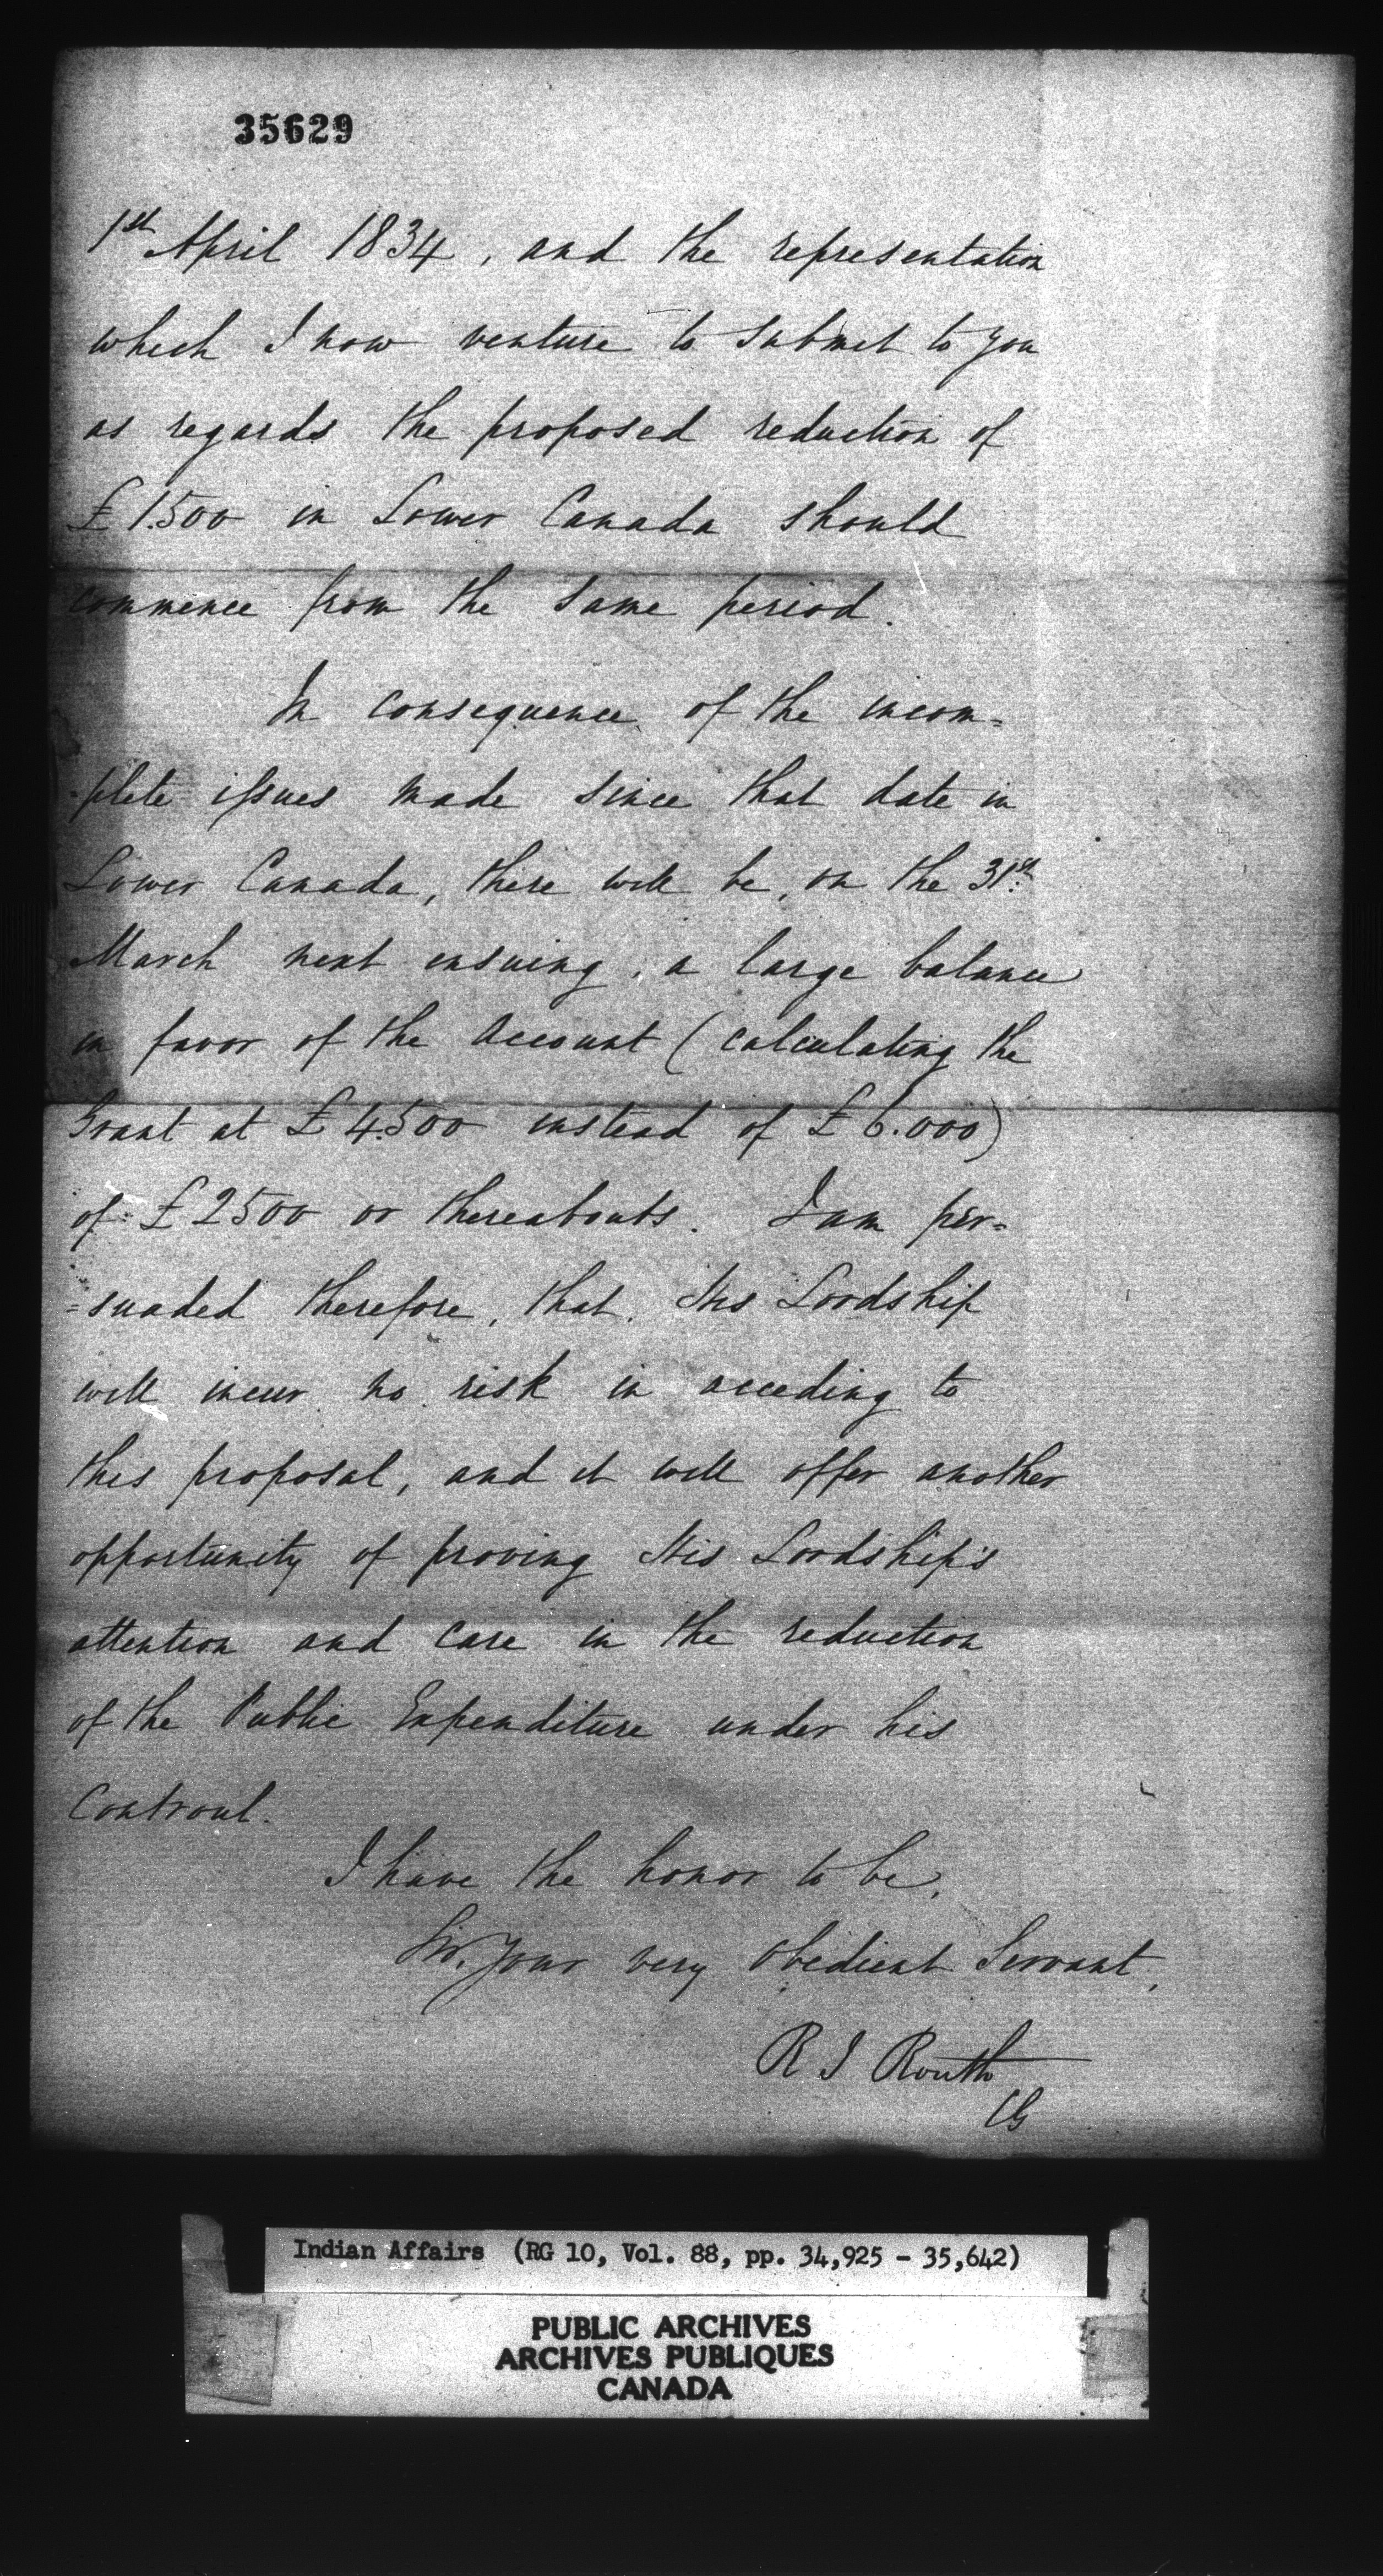 35629
1st April 1834, and the representation
which I now venture to submit to you
as regards the proposed reduction of
£1.500 in Lower Canada should
commence from the same period.
In consequence of the incom=
=plete issues made since that date in
Lower Canada, there will be, on the 31st
March next ensuing, a large balance
in favor of the Account (calculating the
Grant at £4.500 instead of £6.000)
of £2500 or thereabouts. I am per=
=suaded therefore, that, His Lordship
will incur no risk in acceding to
this proposal, and it will offer another
opportunity of proving His Lordship's
attention and care in the reduction
of the Public Expenditure under his
Controul.
I have the honor to be,
Sir, Your very obedient Servant,
R I Routh
CG
Indian Affairs (RG 10, Vol. 88, pp. 34,925 - 35,642)
PUBLIC ARCHIVES
ARCHIVES PUBLIQUES
CANADA